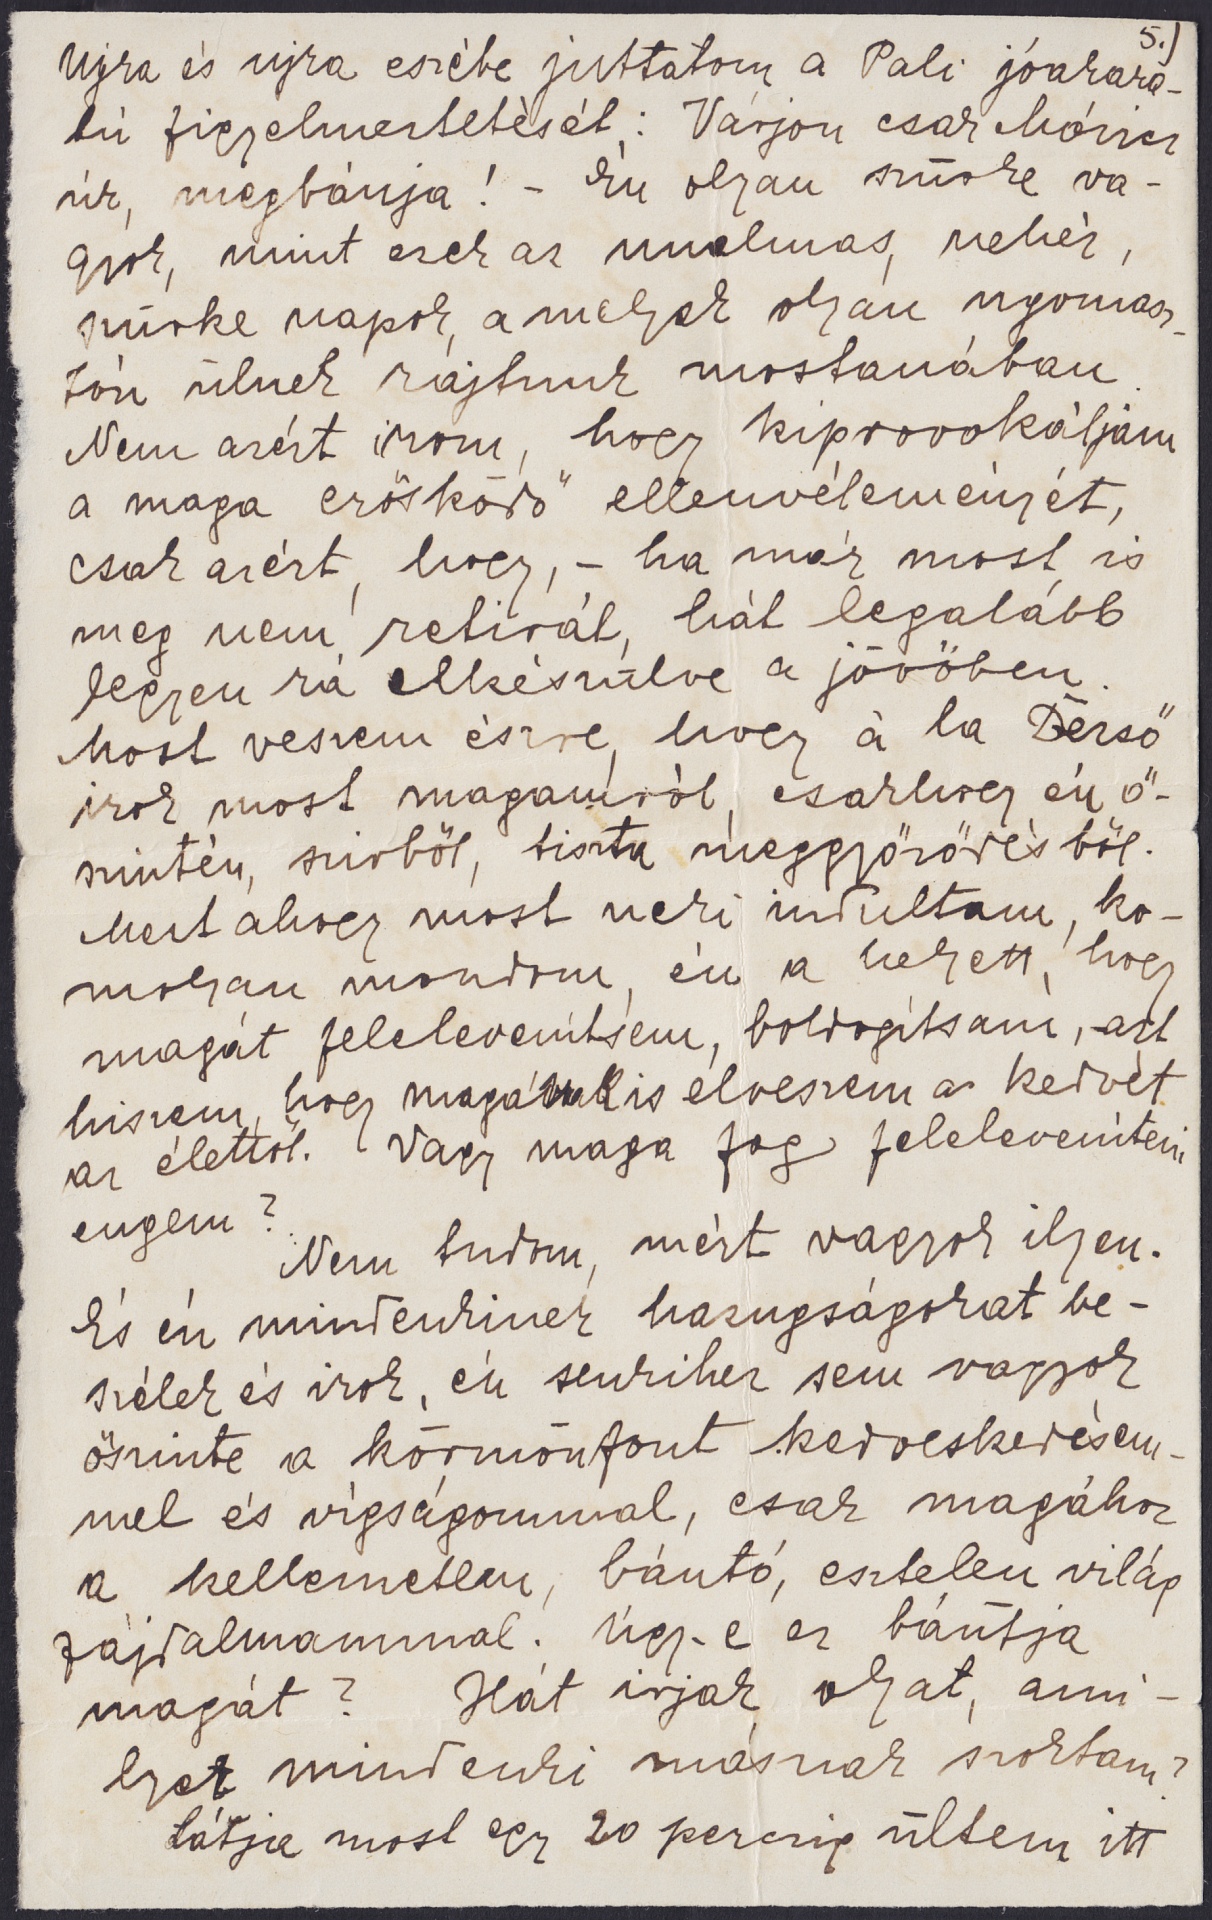 5.)
Ujra és ujra eszébe juttatom a Pali jóakara-
tú figyelmeztetését: Várjon csak Móricz
úr, megbánja! - Én olyan szürke va-
gyok, mint ezek az unalmas, nehéz,
szürke napok, a melyek olyan nyomasz-
tón ülnek rajtunk mostanában.
Nem azért irom, hogy kiprovokáljam
a maga erősködő ellenvéleményét,
csak azért, hogy, - ha már most is
meg nem retirál, hát legalább
legyen rá elkészülve a jövőben.
Most veszem észre, hogy à la Dérső
irok most magamról, csakhogy én ő-
szintén, szivből, tiszta meggyőződésből.
Mert ahogy most neki indultam, ko-
molyan mondom, én a helyett, hogy
magát felelevenítsem, boldogítsam, azt
hiszem, hogy magának is elveszem a kedvét
az élettől. Vagy maga fog feleleveníteni
engem?
Nem tudom, mért vagyok ilyen.
És én mindenkinek hazugságokat be-
szélek és irok, én senkihez sem vagyok
őszinte a körmönfont kedveskedésem-
mel és vígságommal, csak magához
a kellemetlen, bántó, esztelen világ
fájdalmammal. Úgy-e ez bántja
magát? Hát irjak olyat, ami-
lyet mindenki másnak szoktam?
Látja most egy 20 perczig ültem itt